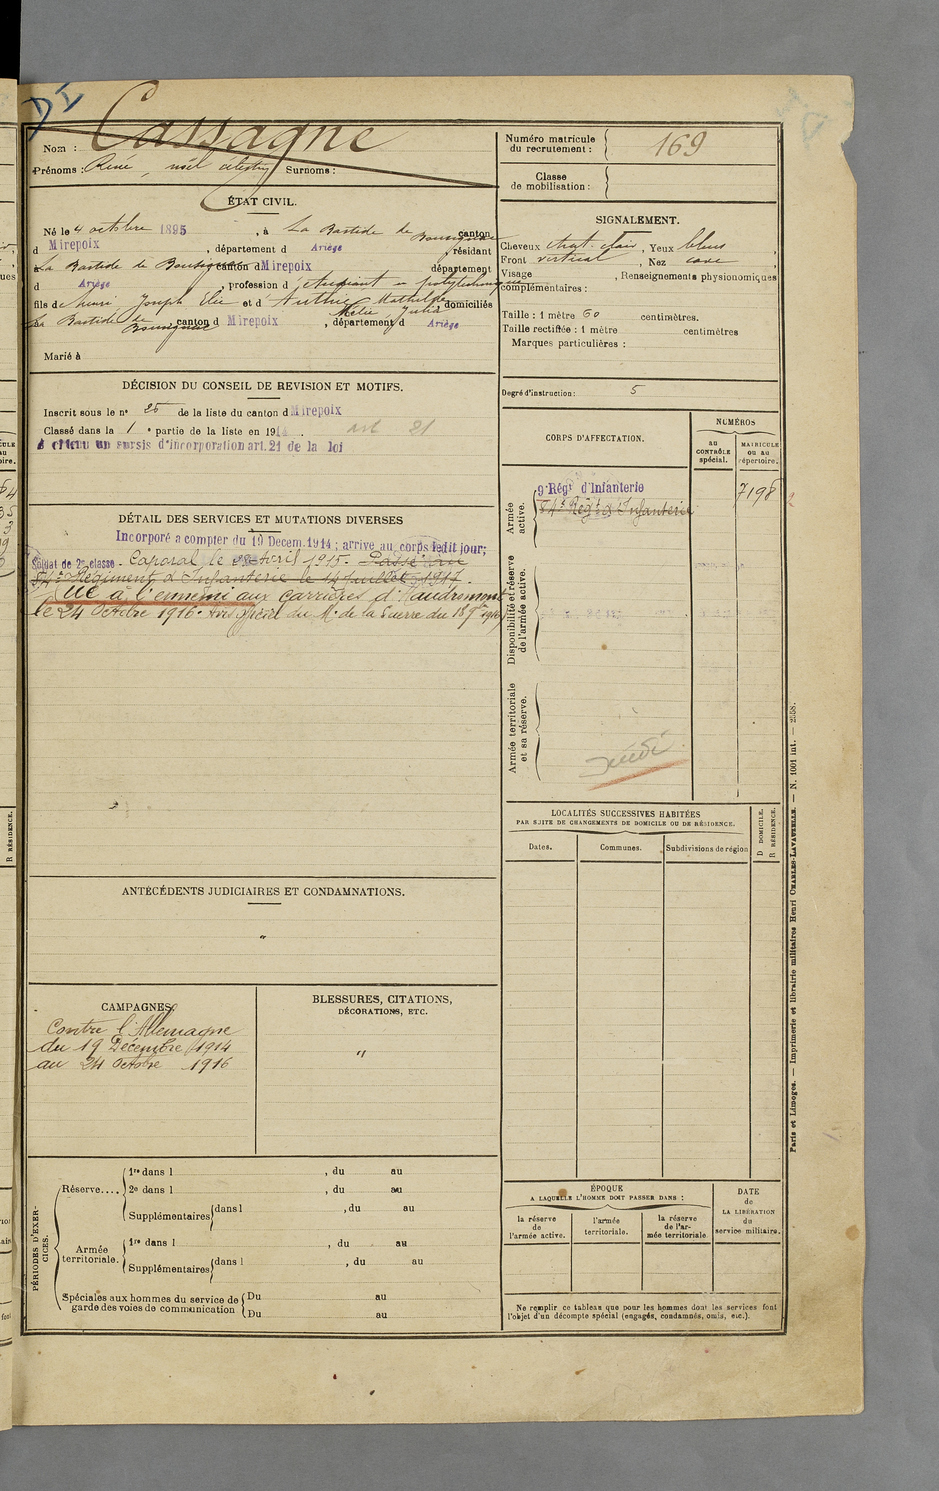 DI
Nom : Cassagne
Prénoms : René, noël célestin Surnoms :
ÉTAT CIVIL.
Né le 4 octobre 1895, à La Bastide de Bousignac canton
d Mirepoix, département d Ariège, résidant
La Bastide de Bousignac canton d Mirepoix département
d Ariège, profession d étudiant en polytechnique
fils de henri Joseph Elie et d Authié Mathilde Julia domiciliés
La Bastide de Bousignac, canton d Mirepoix, département d Ariège
Marié à
DÉCISION DU CONSEIL DE REVISION ET MOTIFS.
Inscrit sous le nº 25 de la liste du canton d Mirepoix
Classé dans la 1e partie de la liste en 191 art 21
A obtenu un sursis d'incorporation art. 21 de la loi
DÉTAIL DES SERVICES ET MUTATIONS DIVERSES
Incorporé a compter du 19 Décem. 1914 ; arrivé au corps ledit jour;
Soldat de 2e classe. Caporal le Avril 1915. Passé au
Régiment d'Infanterie le 14 Juillet 1917.
Tué à l'ennemi aux carrières d'Haudromont
le 24 Octobre 1916. Avis officiel du Mre de la Guerre du
CAMPAGNES.
Contre l'Allemagne
du 19 Décembre 1914
au 24 Octobre 1916
BLESSURES, CITATIONS,
DÉCORATIONS, ETC.
"
ANTÉCÉDENTS JUDICIAIRES ET CONDAMNATIONS.
"
PÉRIODES D'EXERCICES.
Réserve....
1re dans l , du au
2e dans l , du au
Supplémentaires dans l , du au
Armée territoriale.
1re dans l , du au
Supplémentaires dans l , du au
Spéciales aux hommes du service de garde des voies de communication
Du au
Du au
Numéro matricule du recrutement : 169
Classe de mobilisation :
SIGNALEMENT.
Cheveux chat. clair, Yeux bleus
Front vertical, Nez cave
Visage , Renseignements physionomiques
complémentaires :
Taille : 1 mètre 60 centimètres.
Taille rectifiée : 1 mètre centimètres
Marques particulières :
Degré d'instruction : 5
CORPS D'AFFECTATION.
NUMÉROS
au CONTRÔLE spécial.
MATRICULE ou au répertoire.
Armée active.
9e Régt d'Infanterie 7198
Régt d'Infanterie
Disponibilité et réserve de l'armée active.
Armée territoriale et sa réserve.
LOCALITÉS SUCCESSIVES HABITÉES
PAR SUITE DE CHANGEMENTS DE DOMICILE OU DE RÉSIDENCE.
D DOMICILE.
R RÉSIDENCE.
Dates.
Communes.
Subdivisions de région
ÉPOQUE
A LAQUELLE L'HOMME DOIT PASSER DANS :
la réserve de l'armée active.
l'armée territoriale.
la réserve de l'armée territoriale
DATE de LA LIBÉRATION du service militaire.
Ne remplir ce tableau que pour les hommes dont les services font
l'objet d'un décompte spécial (engagés, condamnés, omis, etc.).
Paris et Limoges. — Imprimerie et librairie militaires Henri CHARLES-LAVAUZELLE. — N. 1001 int. — 2558.
R RÉSIDENCE.